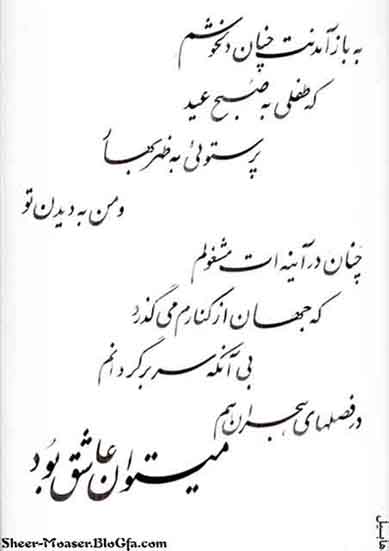 به بازآمدنت چنان دلخوشم
که طفلی به صبح عید
پرستوئی به ظهر بهار
و من به دیدن تو
چنان در آینه ات مشغولم
که جهان از کنارم می گذرد
بی آنکه سر برگردانم
در فصلهای هجران هم
میتوان عاشق بود
هابیل
Sheer-Moaser.BloGfa.com